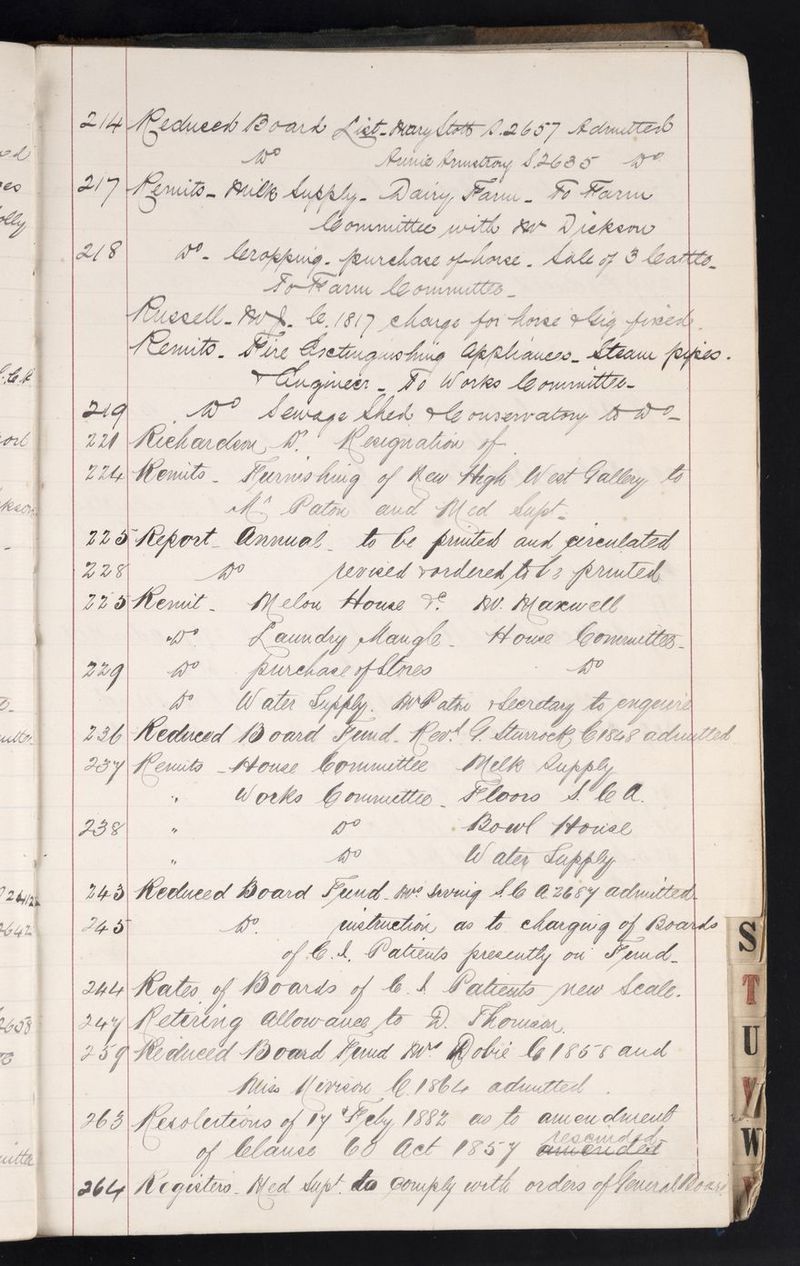 214 Reduced Board List - Mary Stott S.2657 Admitted
Do Annie Armstrong S.2635 Do
217 Remits - Milk Supply - Dairy Farm - To Farm
Committee with Mr Dickson
218 Do - Cropping - purchase of horse - Sale of 3 Cattle -
To Farm Committee -
Russell - Mr J. C.1817 charge for horse & gig fixed.
Remits - Fire Extinguishing Appliances - Steam pipes -
& Engineer - To Works Committee -
219 Do Sewage Shed & Conservatory to Do -
221 Richardson, Dr. Resignation of
224 Remits - Furnishing of New High West Gallery to
Mr Paton and Med Supt -
225 Report Annual - to be printed and circulated
228 Do revised & ordered to be printed
225 Remit - Melon House &c Mr. Maxwell
Do Laundry Mangle - House Committee -
229 Do purchase of Stores Do
Do Water Supply. Mr Paton & Secretary to enquire
236 Reduced Board Fund - Revd G. Sturrock C1868 admitted
237 Remits - House Committee Milk Supply
" Works Committee - Floors S. C A.
238 " Do Bowl House
" Do Water Supply
243 Reduced Board Fund - Mrs Irving S. C A 2687 admitted -
245 Do. instruction as to charging of Boards
of C. I. Patients presently on Fund -
244 Rates of Boards of C. I Patients new Scale.
247 Retiring Allowance to D. Thomson.
259 Reduced Board Fund Mrs Dobie C 1858 and
Miss Nivison C.1864 admitted
263 Resolutions of 17 Feby 1882 as to amendment
rescinded
of Clause 60 Act 1857 amended
264 Registers - Med Supt. to comply with orders of General Board
S
T
U
V
W